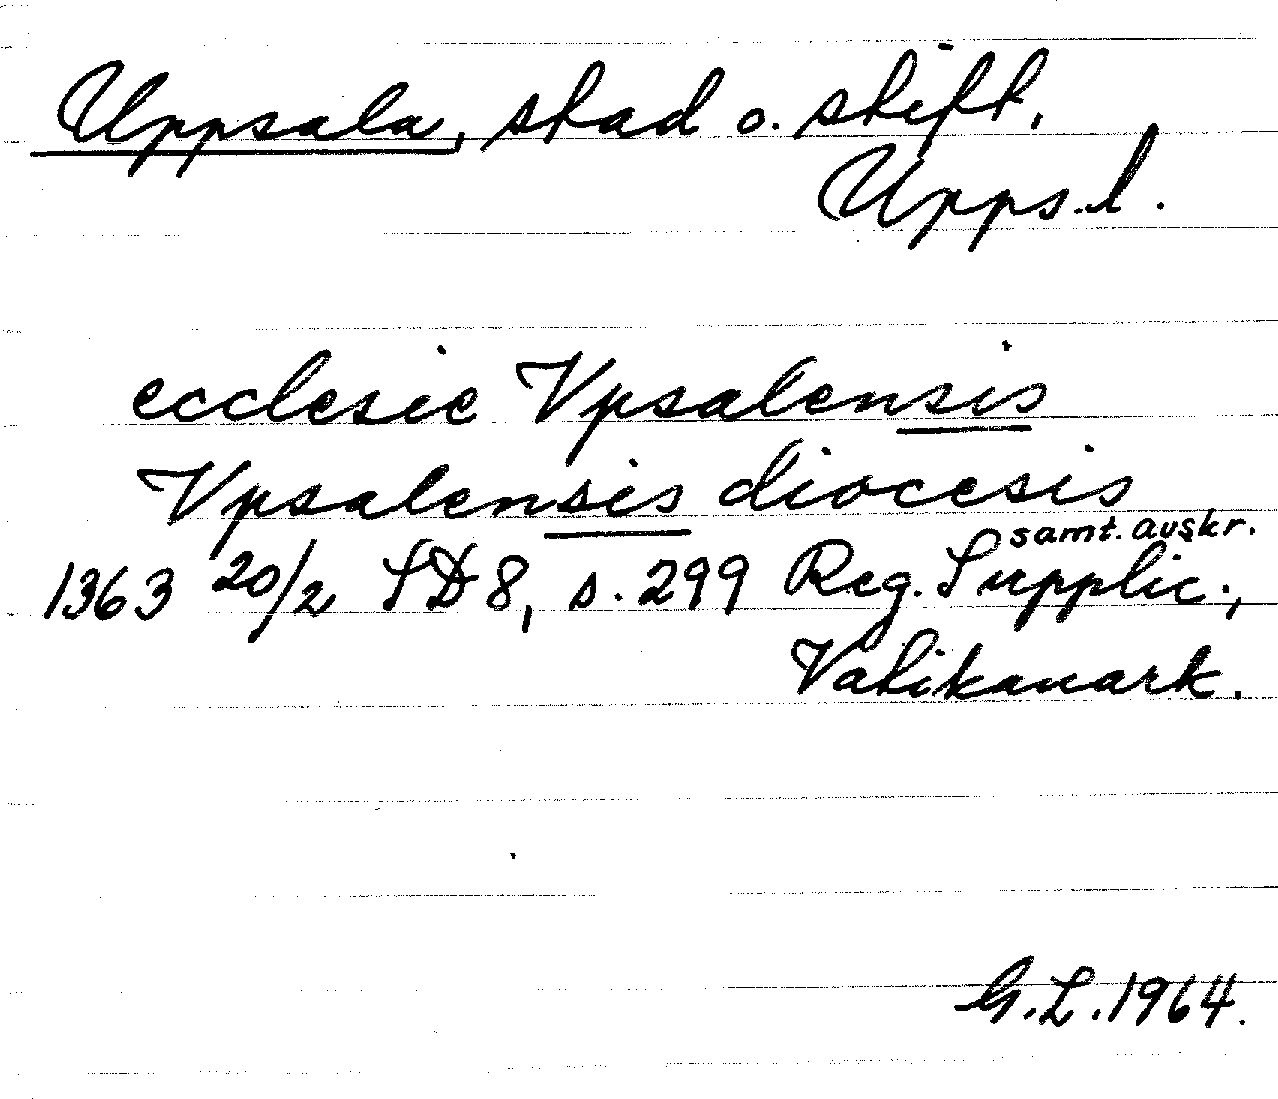 Uppsala, stad o. stift,
Upps.l.
ecclesie Vpsalensis
Vpsalensis diocesis
samt. avskr.
1363 20/2 SD 8, s. 299 Reg. Supplic.,
Vatikanark.
G.L. 1964.